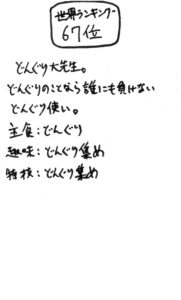 世界ランキング
67位
どんぐり大先生。
どんぐりのことなら誰にも負けない
どんぐり使い。
主食:どんぐり
趣味:どんぐり集め
特技:どんぐり集め